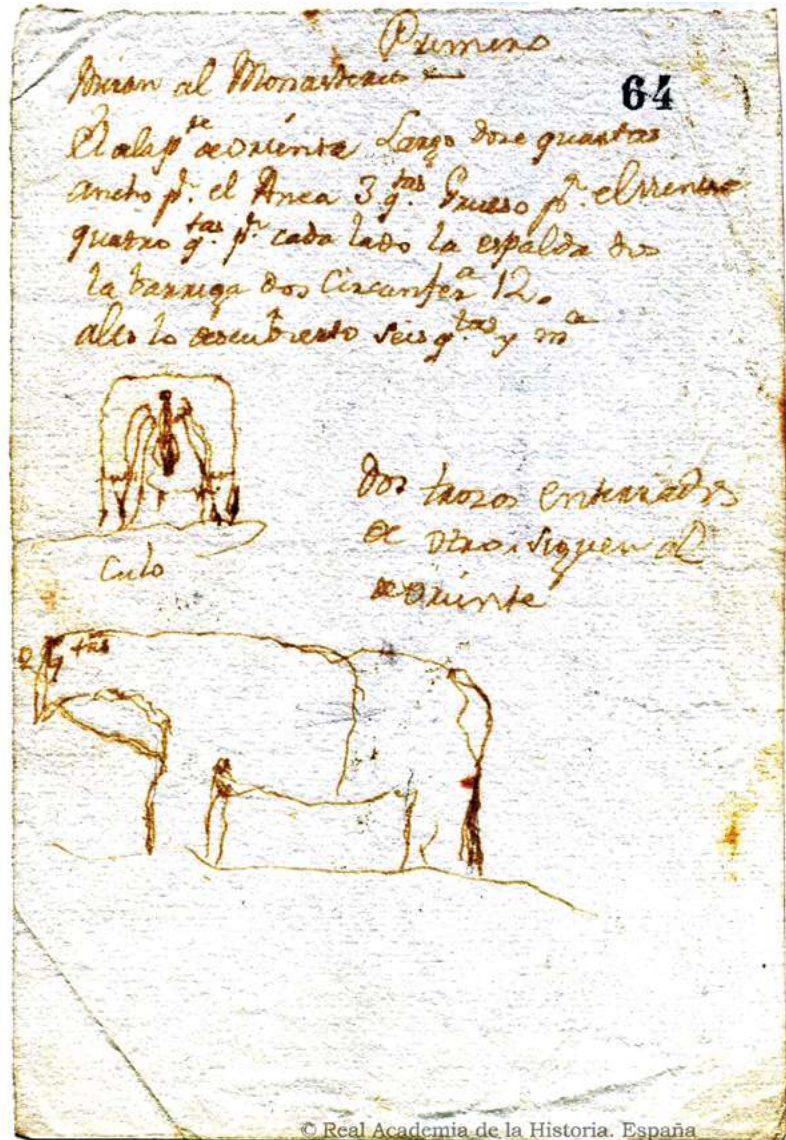 Primero
64
Miran al Monasterio
El a la pte de Oriente Largo doze quartas
ancho pr. el Anca 3 qtas Grueso pr. el
quatro qtas pr. cada lado la espalda dos
la barriga dos Circunfera 12.
alto lo descubierto seis qtas y ma
Culo
dos trozos enterrados
de otro, siguen al
de Oriente
2 qtas
© Real Academia de la Historia. España